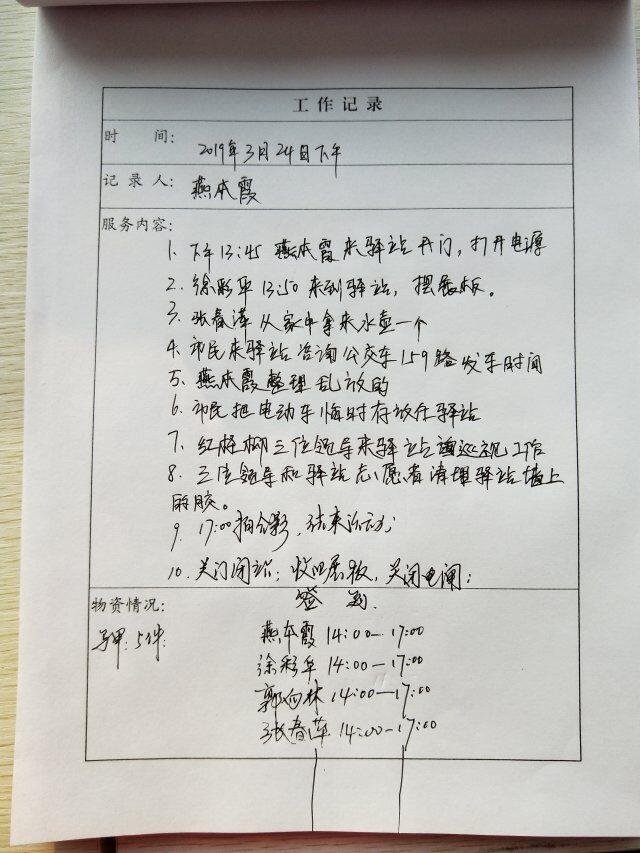 工作记录
时 间: 2019年3月24日下午
记录人: 燕本霞
服务内容:
1. 下午13:45 燕本霞来驿站开门,打开电源
2. 徐彩平13:50来到驿站,摆展板。
3. 张春莲从家中拿来水壶一个
4. 市民来驿站咨询公交车159路发车时间
5. 燕本霞整理乱放的
6. 市民把电动车临时存放在驿站
7. 红柳三位领导来驿站巡视工作
8. 三位领导和驿站志愿者清理驿站墙上
的胶。
9. 17:00拍合影,结束活动
10. 关门闭站;收回展板,关闭电闸;
物资情况: 签到.
马甲:5件;
燕本霞 14:00—17:00
徐彩平 14:00—17:00
郭向林 14:00—17:00
张春莲 14:00—17:00